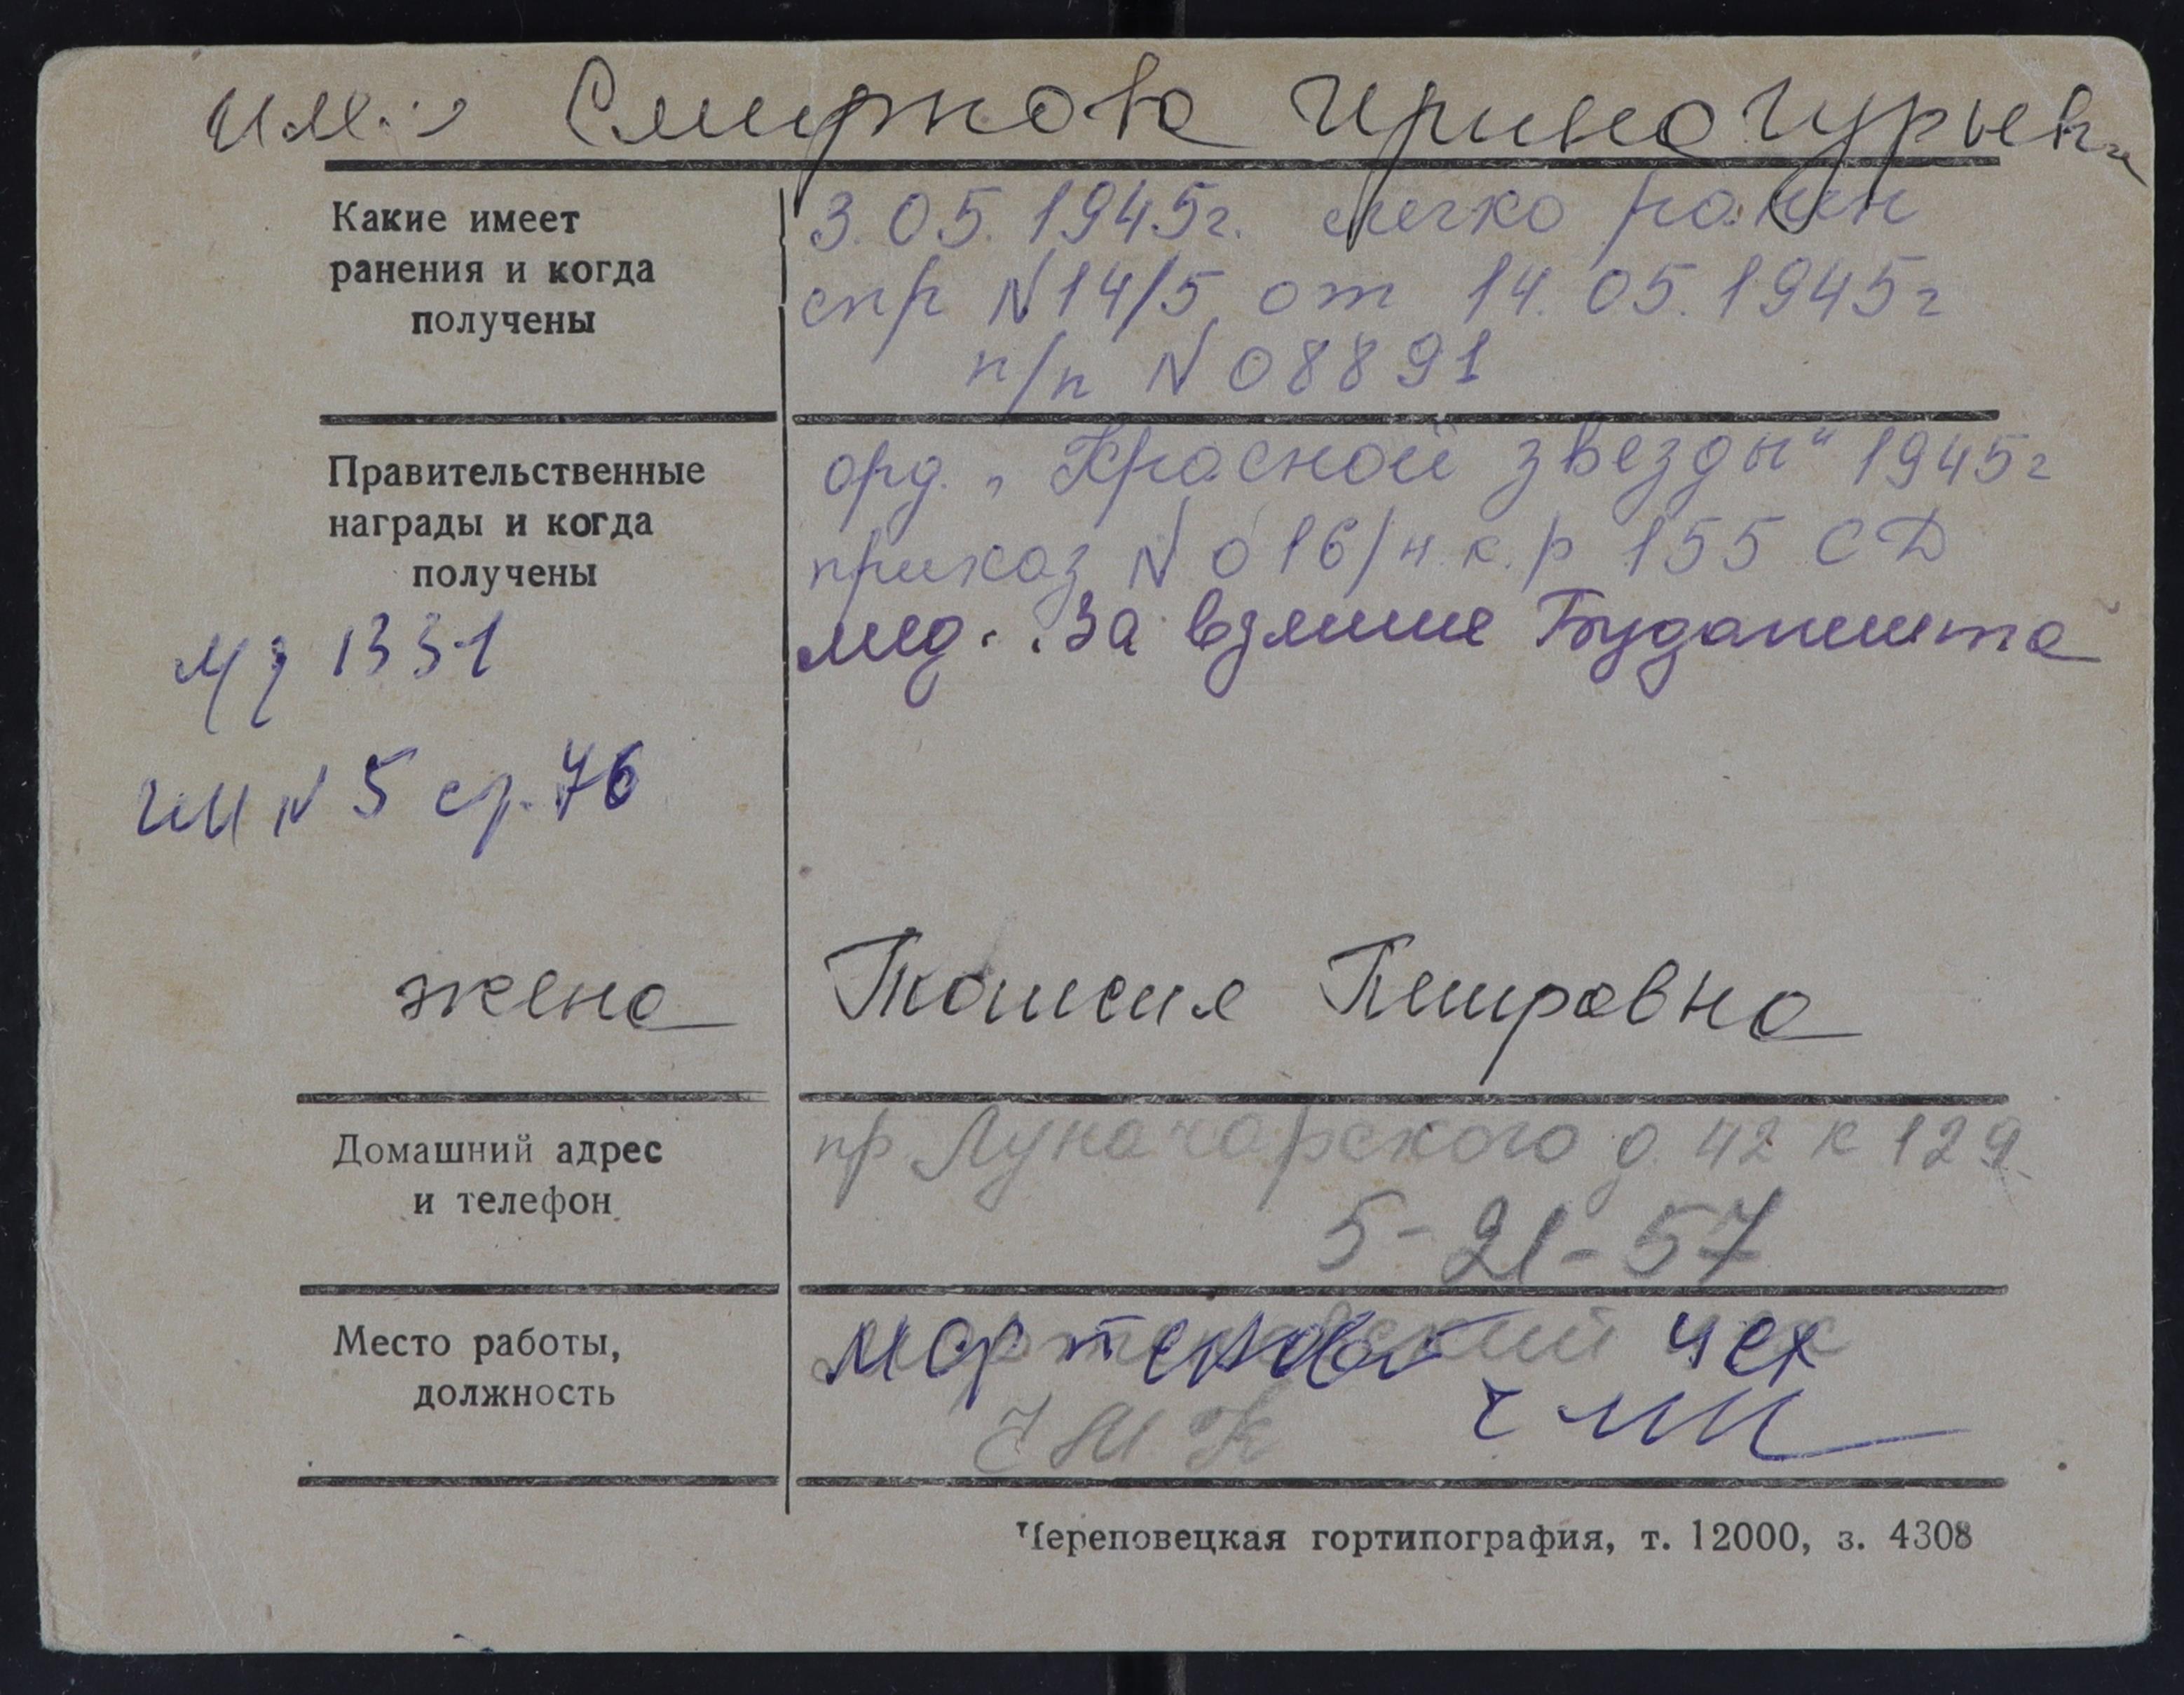 Смирнова Ирина Гурьевн
Какие имеет
ранения и когда
получены
3.05.1945г. легко ранен
спр N14/5 от 14.05.1945г
п/п N08891
Правительственные
награды и когда
получены
орд. „Красной звезды“ 1945г
приказ N016/н к.р 155 СД
мед. „За взятие Будапешта“
1331
N 5 ср. 76
жена
Таисия Петровна
Домашний адрес
и телефон
пр Луначарского д. 42 к 129
5-21-57
Место работы,
должность
мартеновский цех
ЧМК
Череповецкая гортипография, т. 12000, з. 4308